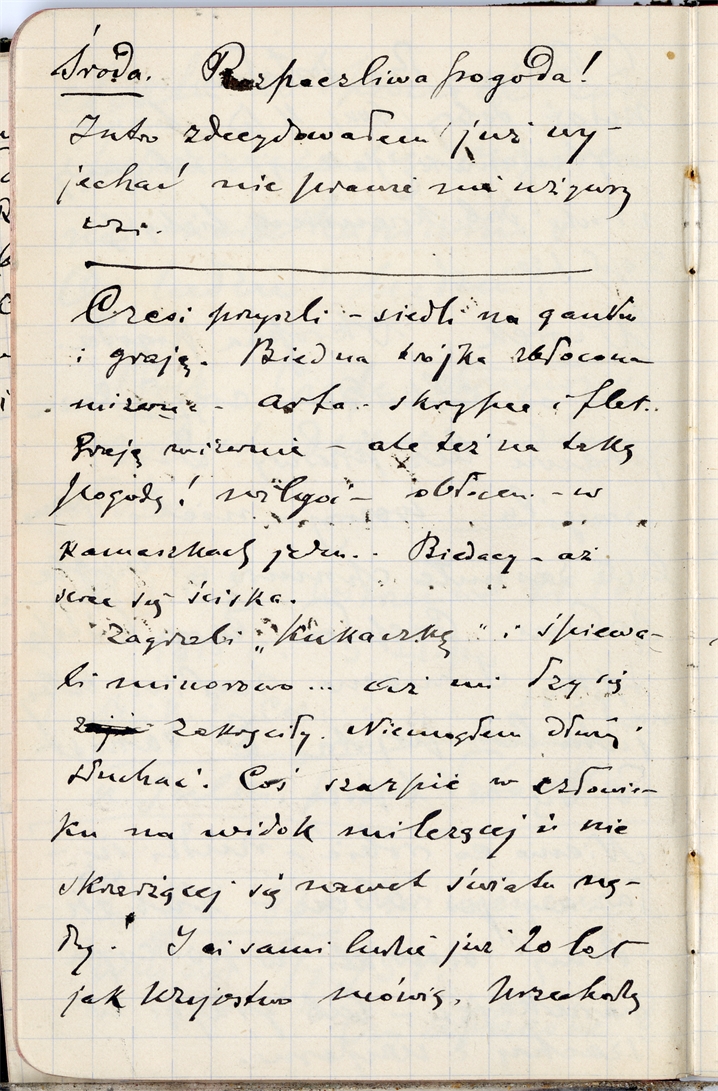 Środa. Rozpaczliwa pogoda!
Jutro zdecydowałem już wy-
jechać nie prawie
Czesi przyszli – siedli na ganku
i grają. Biedna trójka zabłocona
mizerna – arfa – skrzypce i flet.
Grają mizernie – ale też na taką
pogodę! wilgoć – obłocen. – w
kamaszkach jeden.. Biedacy – aż
serce się ściska.
Zagrali „Kukaczkę" i śpiewa-
li minorowo... aż mi łzy się
zakręciły. Niemogłem dłużej
słuchać. Coś szarpie w człowie-
ku na widok milczącej i nie
skarżącej się nawet światu nę-
dzy! I ci sami ludzie już 20 lat
jak Wujostwo mówią, przechodzą